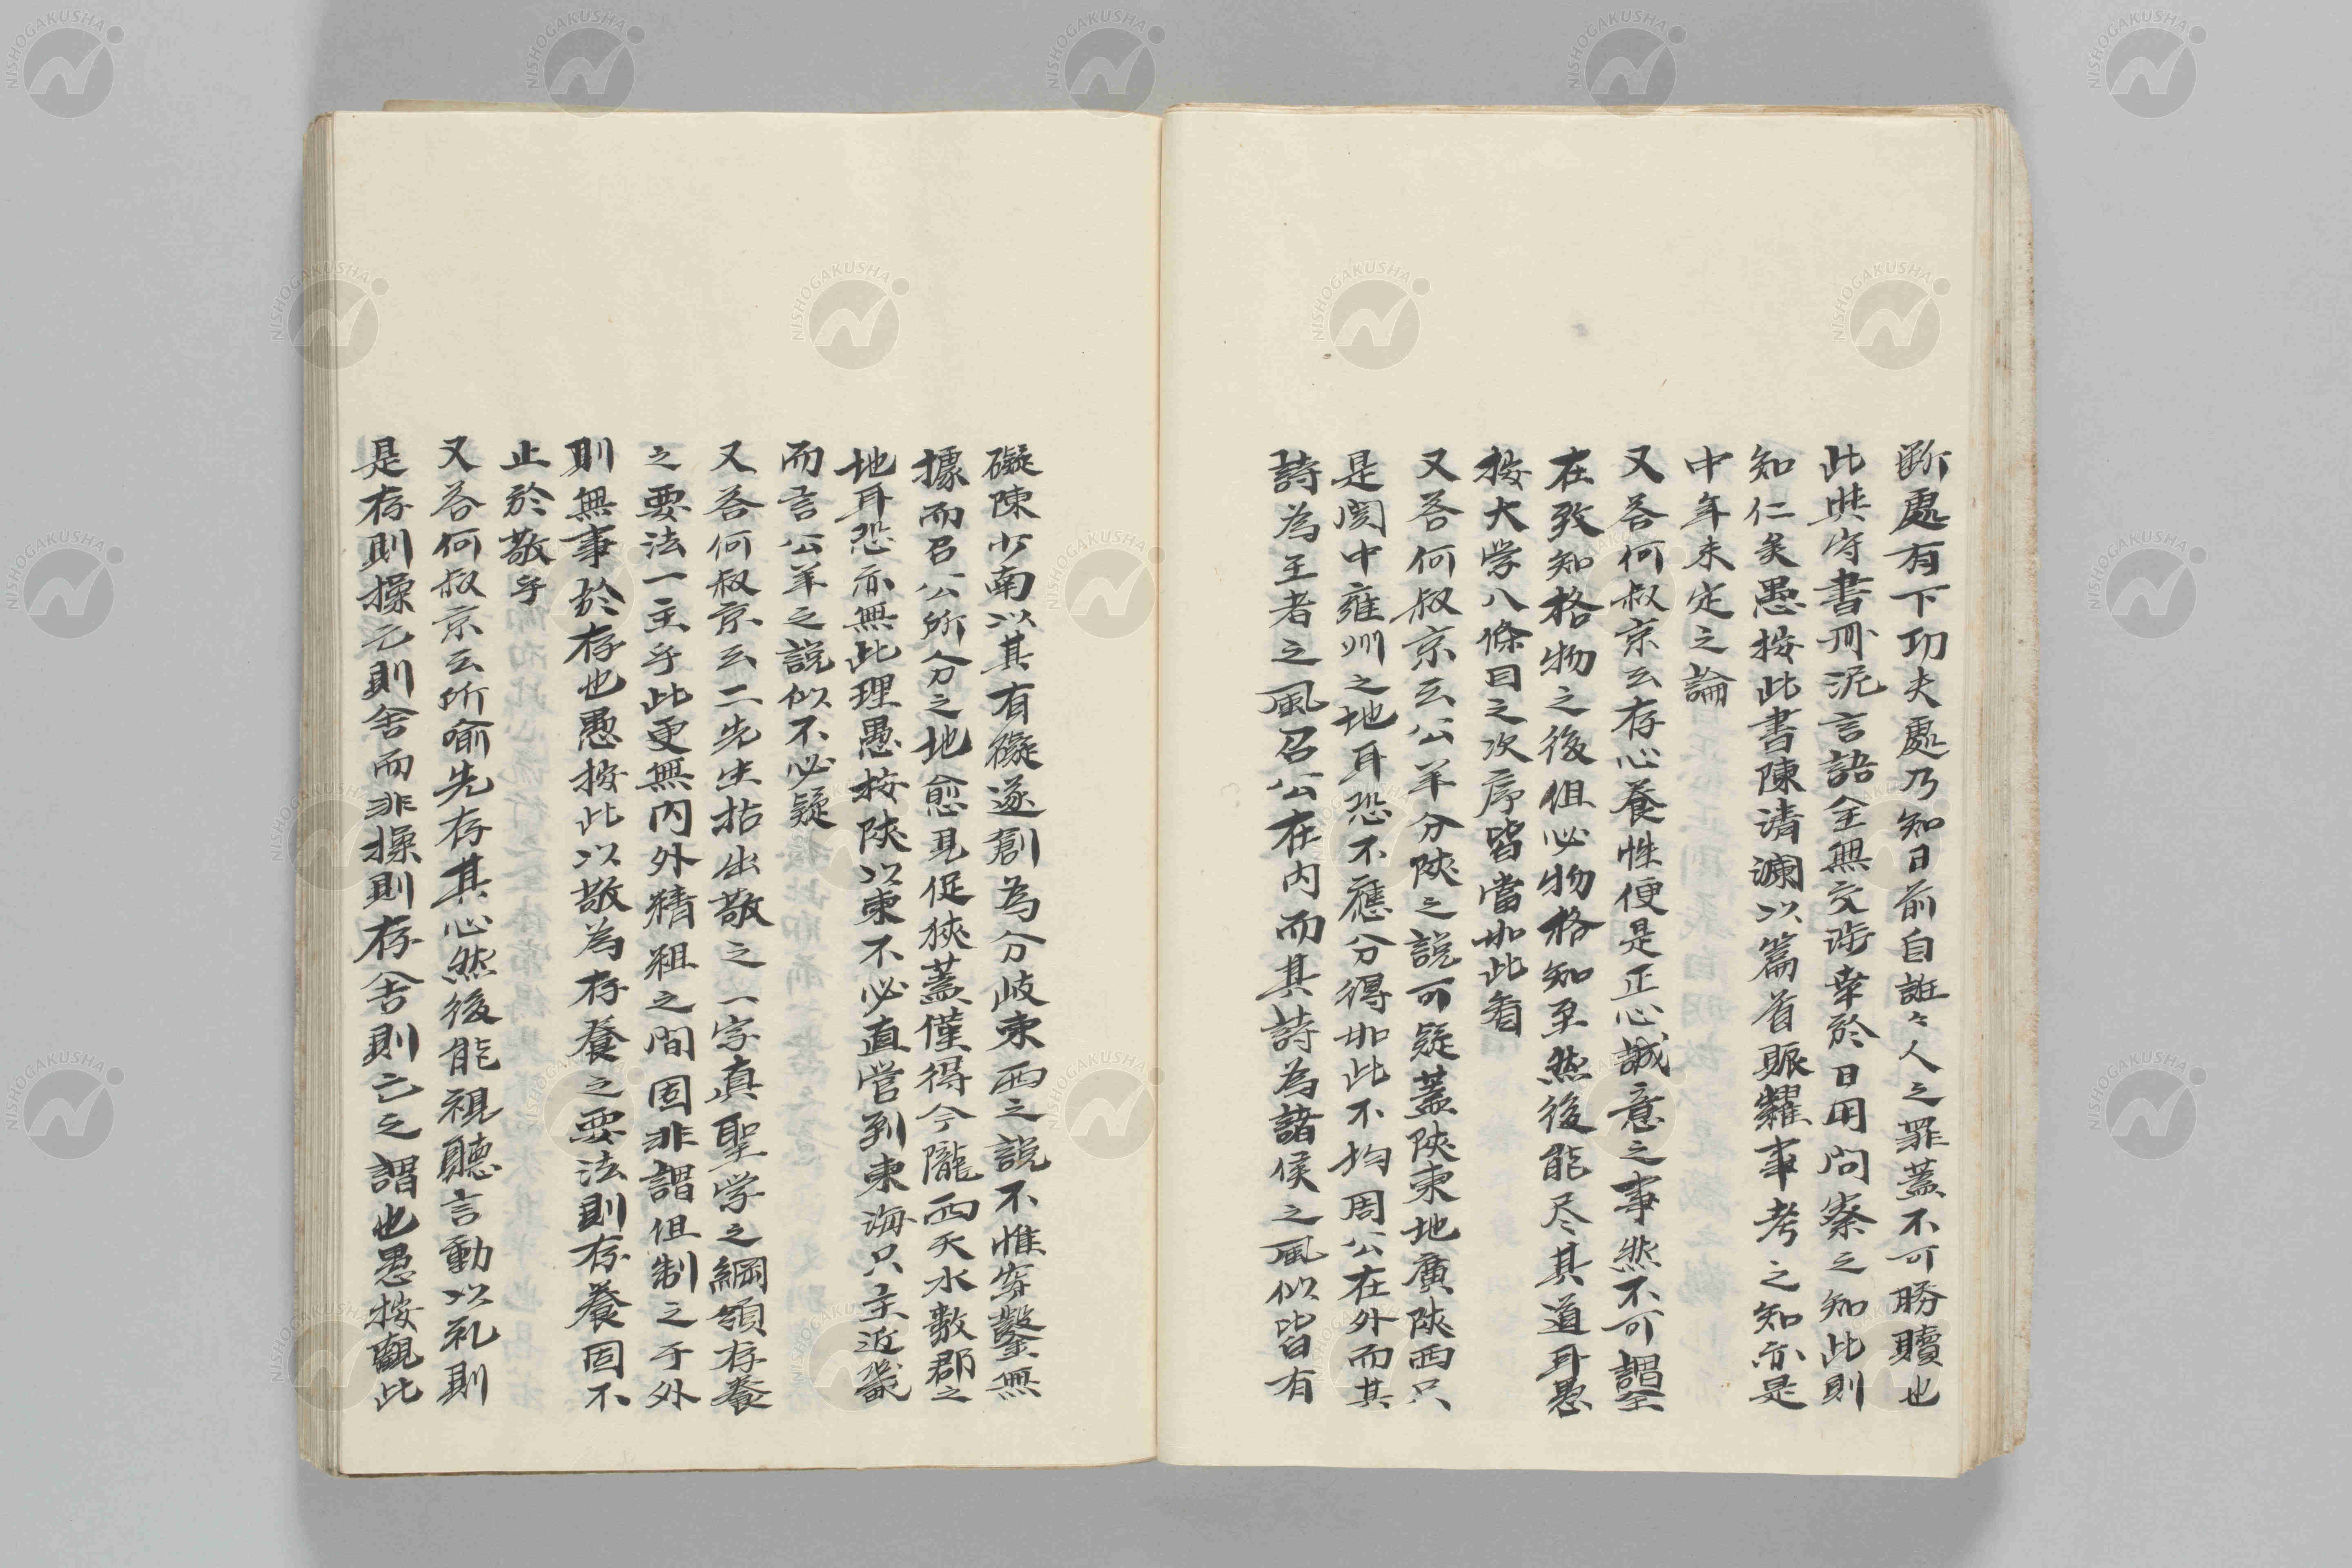 断處有下功夫處乃知日前自誑々人之罪蓋不可勝贖也
此與守書冊泥言語全無交渉幸於日用間察之知此則
知仁矣愚按此書陳清瀾以篇首賑糶事考之知亦是
中年未定之論
又答何叔京云存心養性便是正心誠意之事然不可謂全
在致知格物之後但必物格知至然後能尽其道耳愚
按大学八條目之次序皆當如此看
又答何叔京云公羊分陝之説可疑蓋陝東地廣陝西只
是関中雍州之地耳恐不應分得如此不均周公在外而其
詩為王者之風召公在内而其詩為諸侯之風似皆有
礙陳少南以其有礙遂創為分岐東西之説不惟穿鑿無
據而召公所分之地愈見促狹蓋僅得今隴西天水數郡之
地耳恐亦無此理愚按陝以東不必直営到東海只主近畿
而言公羊之説似不必疑
又答何叔京云二先生拈出敬之一字真聖学之綱領存養
之要法一主乎此更無内外精粗之間固非謂但制之于外
則無事於存也愚按此以敬為存養之要法則存養固不
止於敬乎
又答何叔京云所喻先存其心然後能視聴言動以礼則
是存則操亡則舍而非操則存舍則亡之謂也愚按觀此
NISHOGAKUSHA